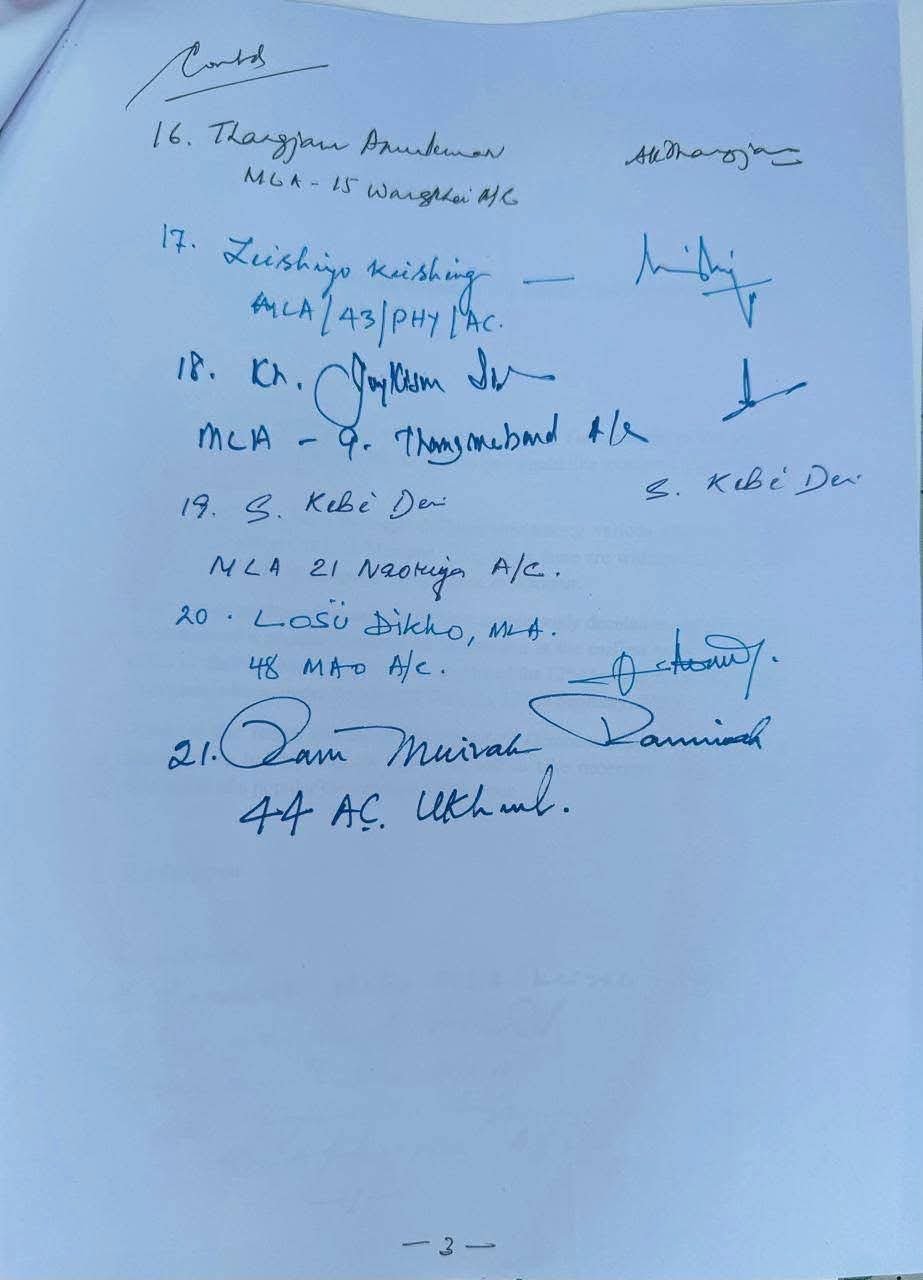 Contd
16. Thangjam Arunkumar
MLA - 15 Wangkhei A/C
17. Leishiyo Keishing —
MLA/43/PHY/AC.
18. Kh. Joykisan
MLA - 9. Thangmeband A/C
19. S. Kebi Devi S. Kebi Devi
MLA 21 Naoriya A/C.
20. Losü Dikho, MLA.
48 MAO A/C.
21. Ram Muivah
44 AC. Ukhrul.
— 3 —